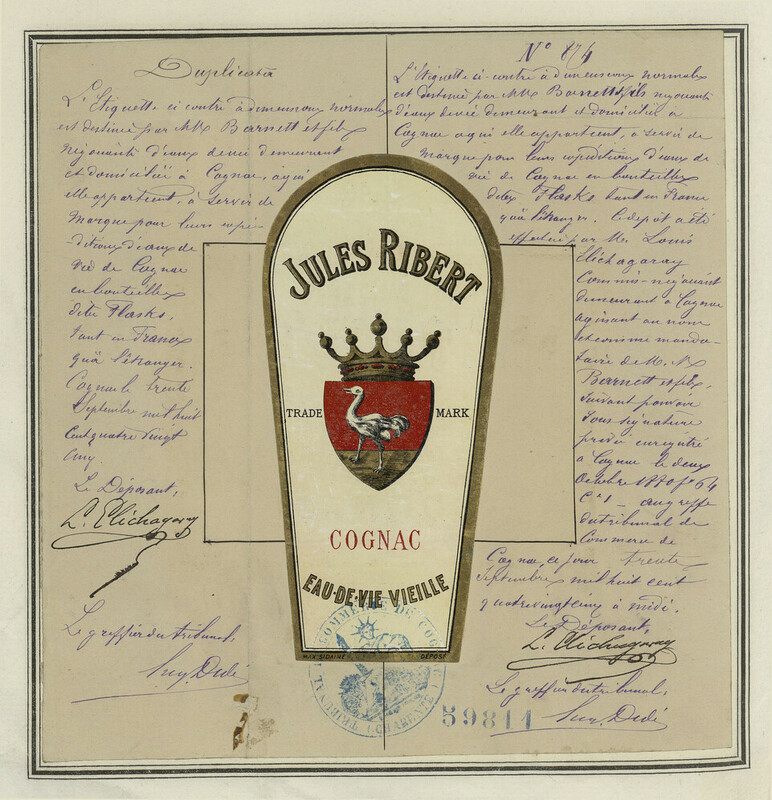 Duplicata
L'Etiquette ci contre à dimensions normales
est destinée par MM Barnett et fils
négociants d'eaux de vie demeurant
et domiciliés à Cognac, à qui
elle appartient, à servir de
marque pour leurs expé-
-ditions d'eaux de
vie de Cognac
en bouteilles
dites Flasks,
tant en France
qu'à l'étranger.
Cognac le trente
Septembre mil huit
cent quatre vingt
Le Déposant,
L. Elichagaray
Le greffier du tribunal,
JULES RIBERT
TRADE MARK
COGNAC
EAU-DE-VIE VIEILLE
DÉPOSÉ
TRIBUNAL DE COMMERCE DE COGNAC
CHARENTE
N° 874
L'Etiquette ci-contre à dimensions normales
est destinée par MM Barnett & fils négociants
d'eaux de vie demeurant et domiciliés à
Cognac à qui elle appartient, à servir de
marque pour leurs expéditions d'eaux de
vie de Cognac en bouteilles
dites Flasks tant en France
qu'à l'étranger. Ce dépôt a été
effectué par M. Louis
Elichagaray
Commis-négociant
demeurant à Cognac
agissant au nom
et comme manda-
taire de M.M.
Barnett et fils,
suivant pouvoir
sous signature
privée enregistré
à Cognac le deux
Octobre f° 64
Cse 1 - au greffe
du tribunal de
Commerce de
Cognac, ce jour trente
Septembre mil huit cent
quatre vingt à midi.
Le Déposant
L. Elichagaray
Le greffier du tribunal,
59811